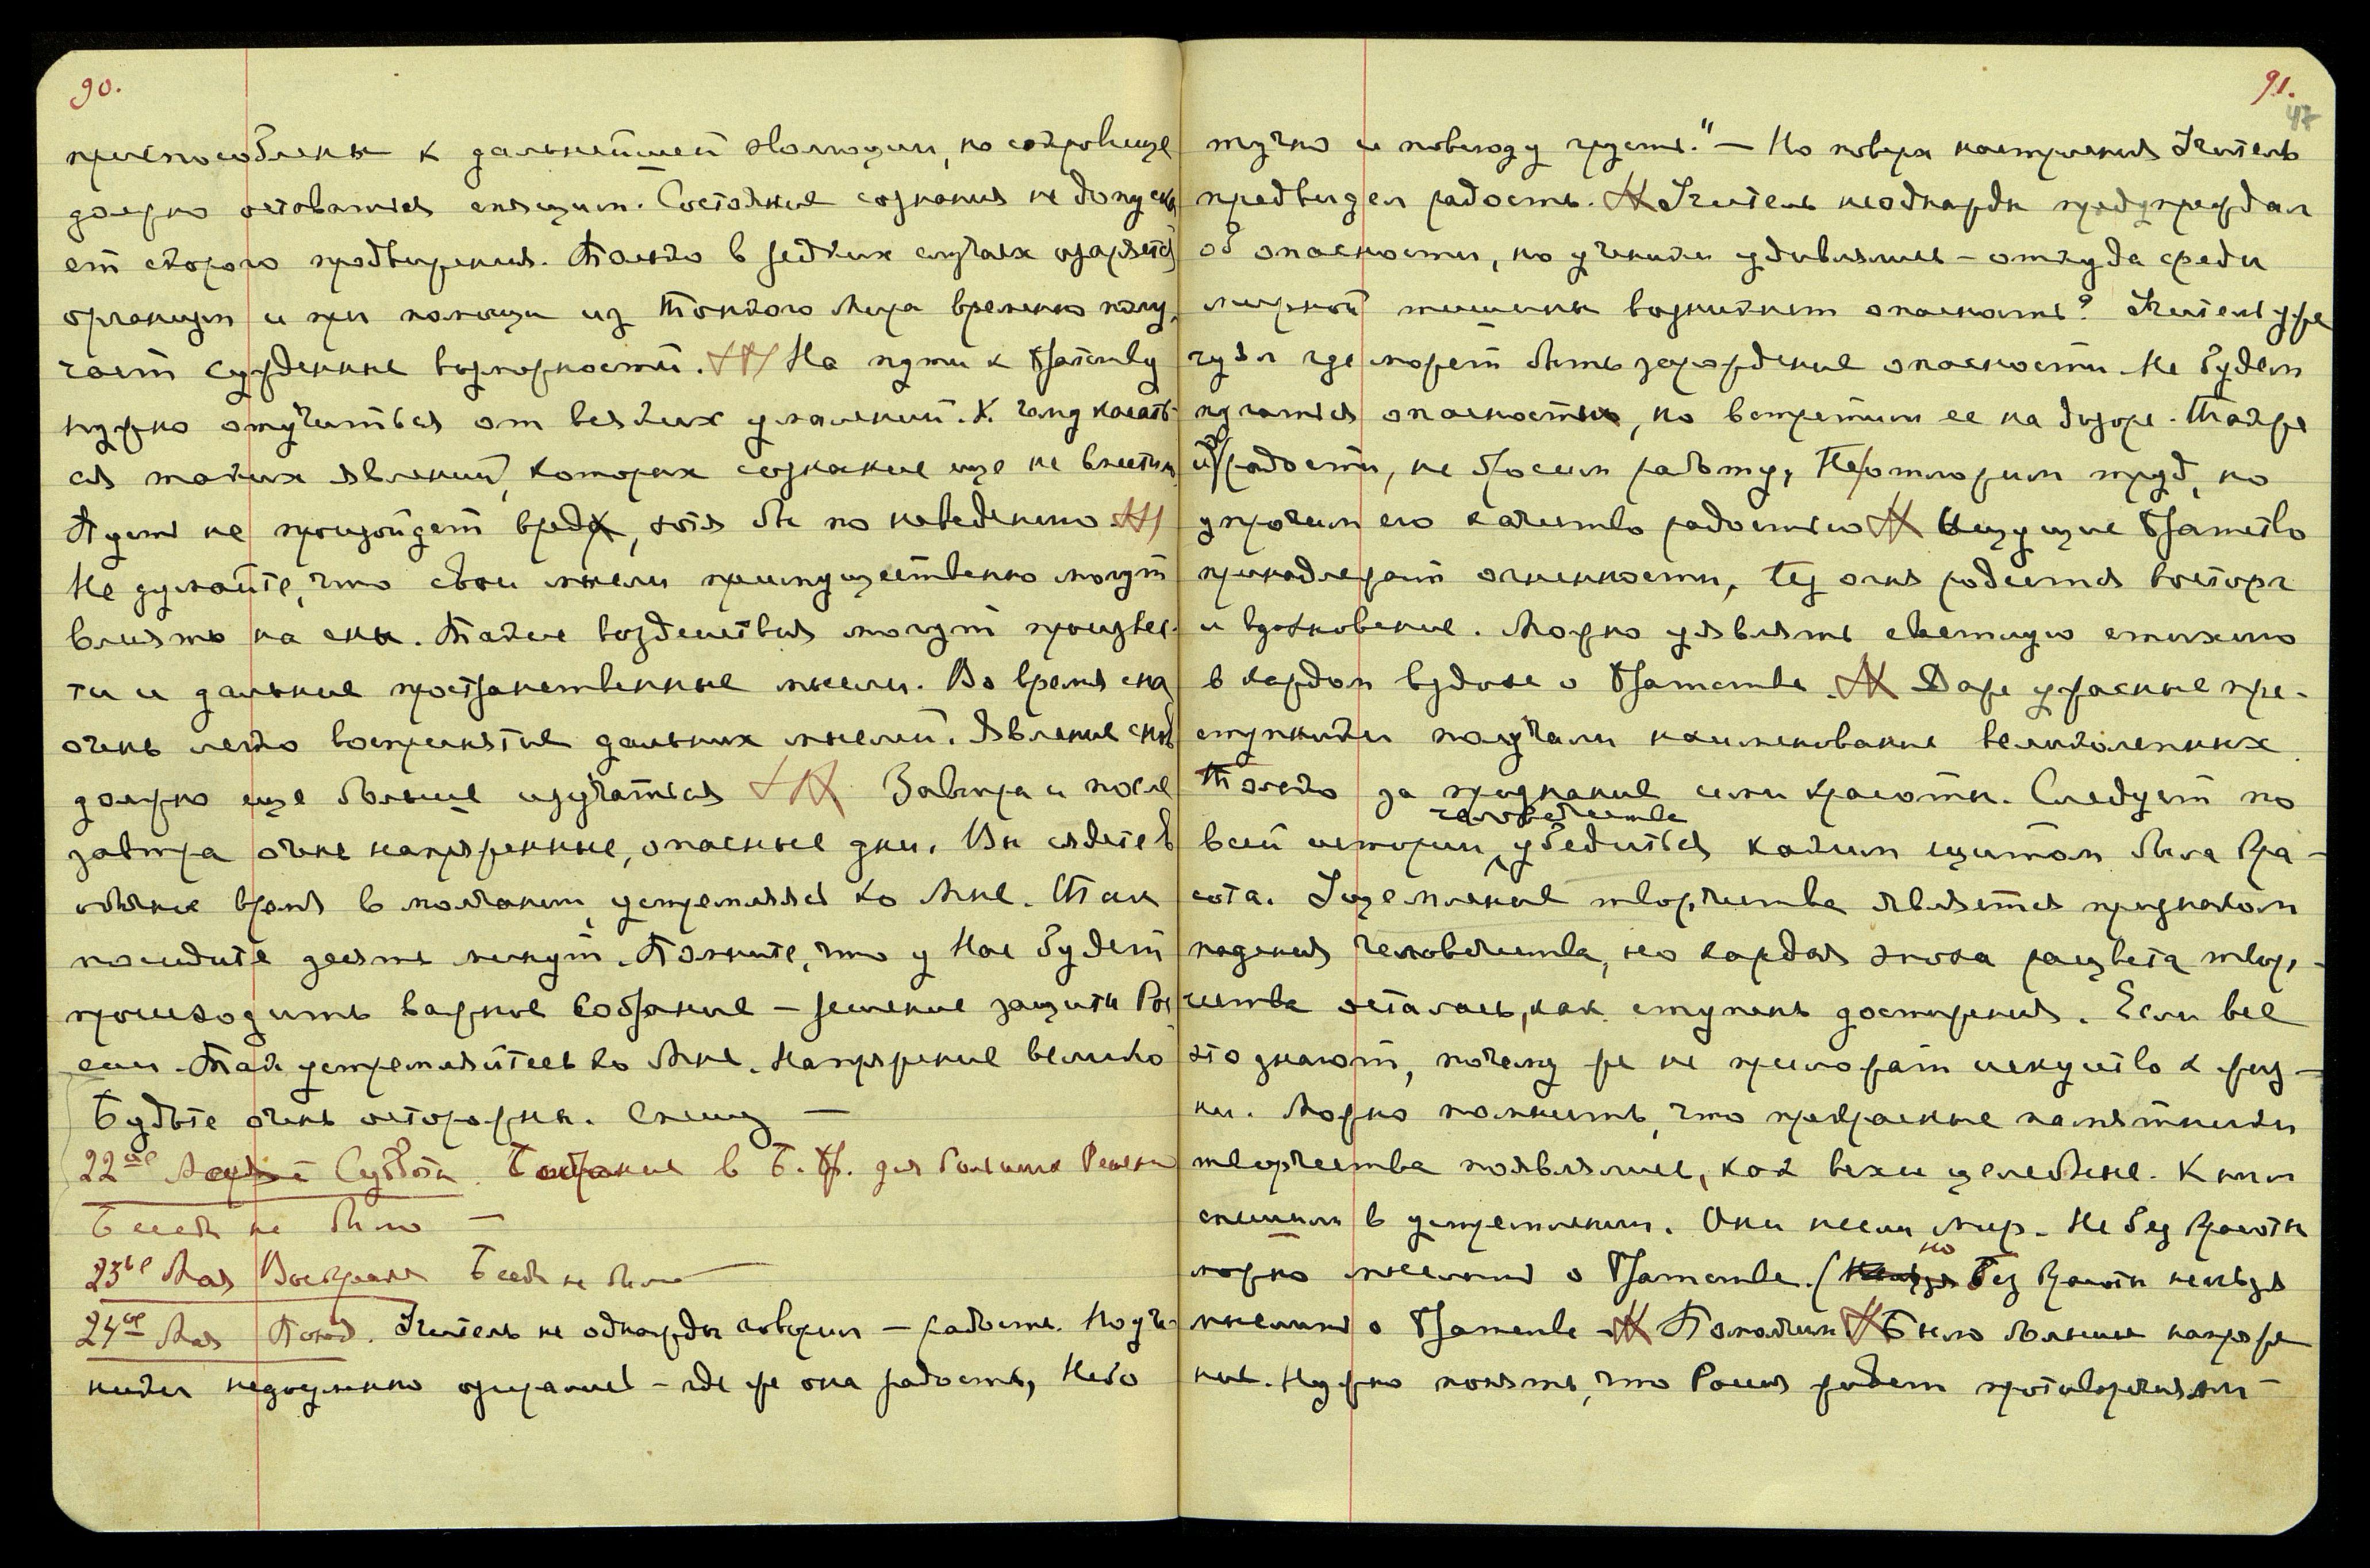 90.
приспособлены к дальнейшей эволюции, но сокровище
должно оставаться спящим. Состояние сознания не допуска
ет скорого продвижения. Только в редких случаях озаряется
организм и при помощи из Тонкого Мира временно полу-
чает сужденные возможности. На пути к Братству
нужно отучиться от всяких умалений. К чему касать-
ся таких явлений, которых сознание еще не вместит.
Пусть не произойдет вред, хотя бы по неведению
Не думайте, что свои мысли преимущественно могут
влиять на сны. Такие воздействия могут произвес-
ти и дальние пространственные мысли. Во время сна
очень легко восприятие дальних мыслей. Явление снов
должно еще больше изучаться Завтра и после
завтра очень напряженные, опасные дни. Вы сядете в
обычное время в молчании, устремляясь ко Мне. Так
посидите десять минут. Помните, что у Нас будет
происходить важное Собрание – решение защиты Рос
сии. Так устремляйтесь ко Мне. Напряжение велико
Будьте очень осторожны. Спешу —
22ое Мая Суббота. Собрание в Б. Бр. для больших Решений
Бесед не было —
23ье Мая Воскресен Бесед не было —
24ое Мая Понед. Учитель не однажды говорил – радость. Но уче-
ники недоуменно озирались – где же она радость, Небо
91.
47
тучно и повсюду грусть." — Но поверх настроения Учитель
предвидел радость. Учитель неоднажды предупреждал
об опасности, но ученики удивлялись – откуда среди
мирной тишины возникнет опасность? Учитель уже
чуял где может быть зарождение опасности. Не будем
пугаться опасности, но встретим ее на дозоре. Также
и радости, не бросим работу, Не отложим труд, но
упрочим его качество радостью Ищущие Братство
принадлежат огненности, Из огня родится восторг
и вдохновение. Можно уявлять светлую стихию
в каждом вздохе о Братстве. Даже ужасные пре-
ступники получали наименование великолепных
Только за признание силы красоты. Следует по
всей истории человечества убедиться каким щитом была Кра-
сота. Ущемление творчества является признаком
падения человечества, но каждая эпоха расцвета твор-
чества осталась, как ступень достижения. Если все
это знают, почему же не приложат искусство к жиз-
ни. Можно помнить, что прекрасные памятники
творчества появлялись, как вехи целебные. К ним
спешили в устремлении. Они несли мир. Не без Красоты
можно мыслить о Братстве. (но Без Красоты нельзя
мыслить о Братстве Помолчим Было большое напряже
ние. Нужно понять, что Россия будет противоречиями –